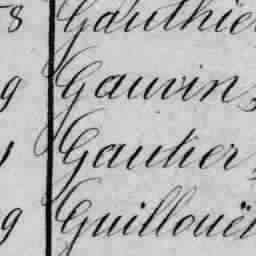 8 Gauthie
9 Gauvin,
1 Gautier,
9 Guilloue